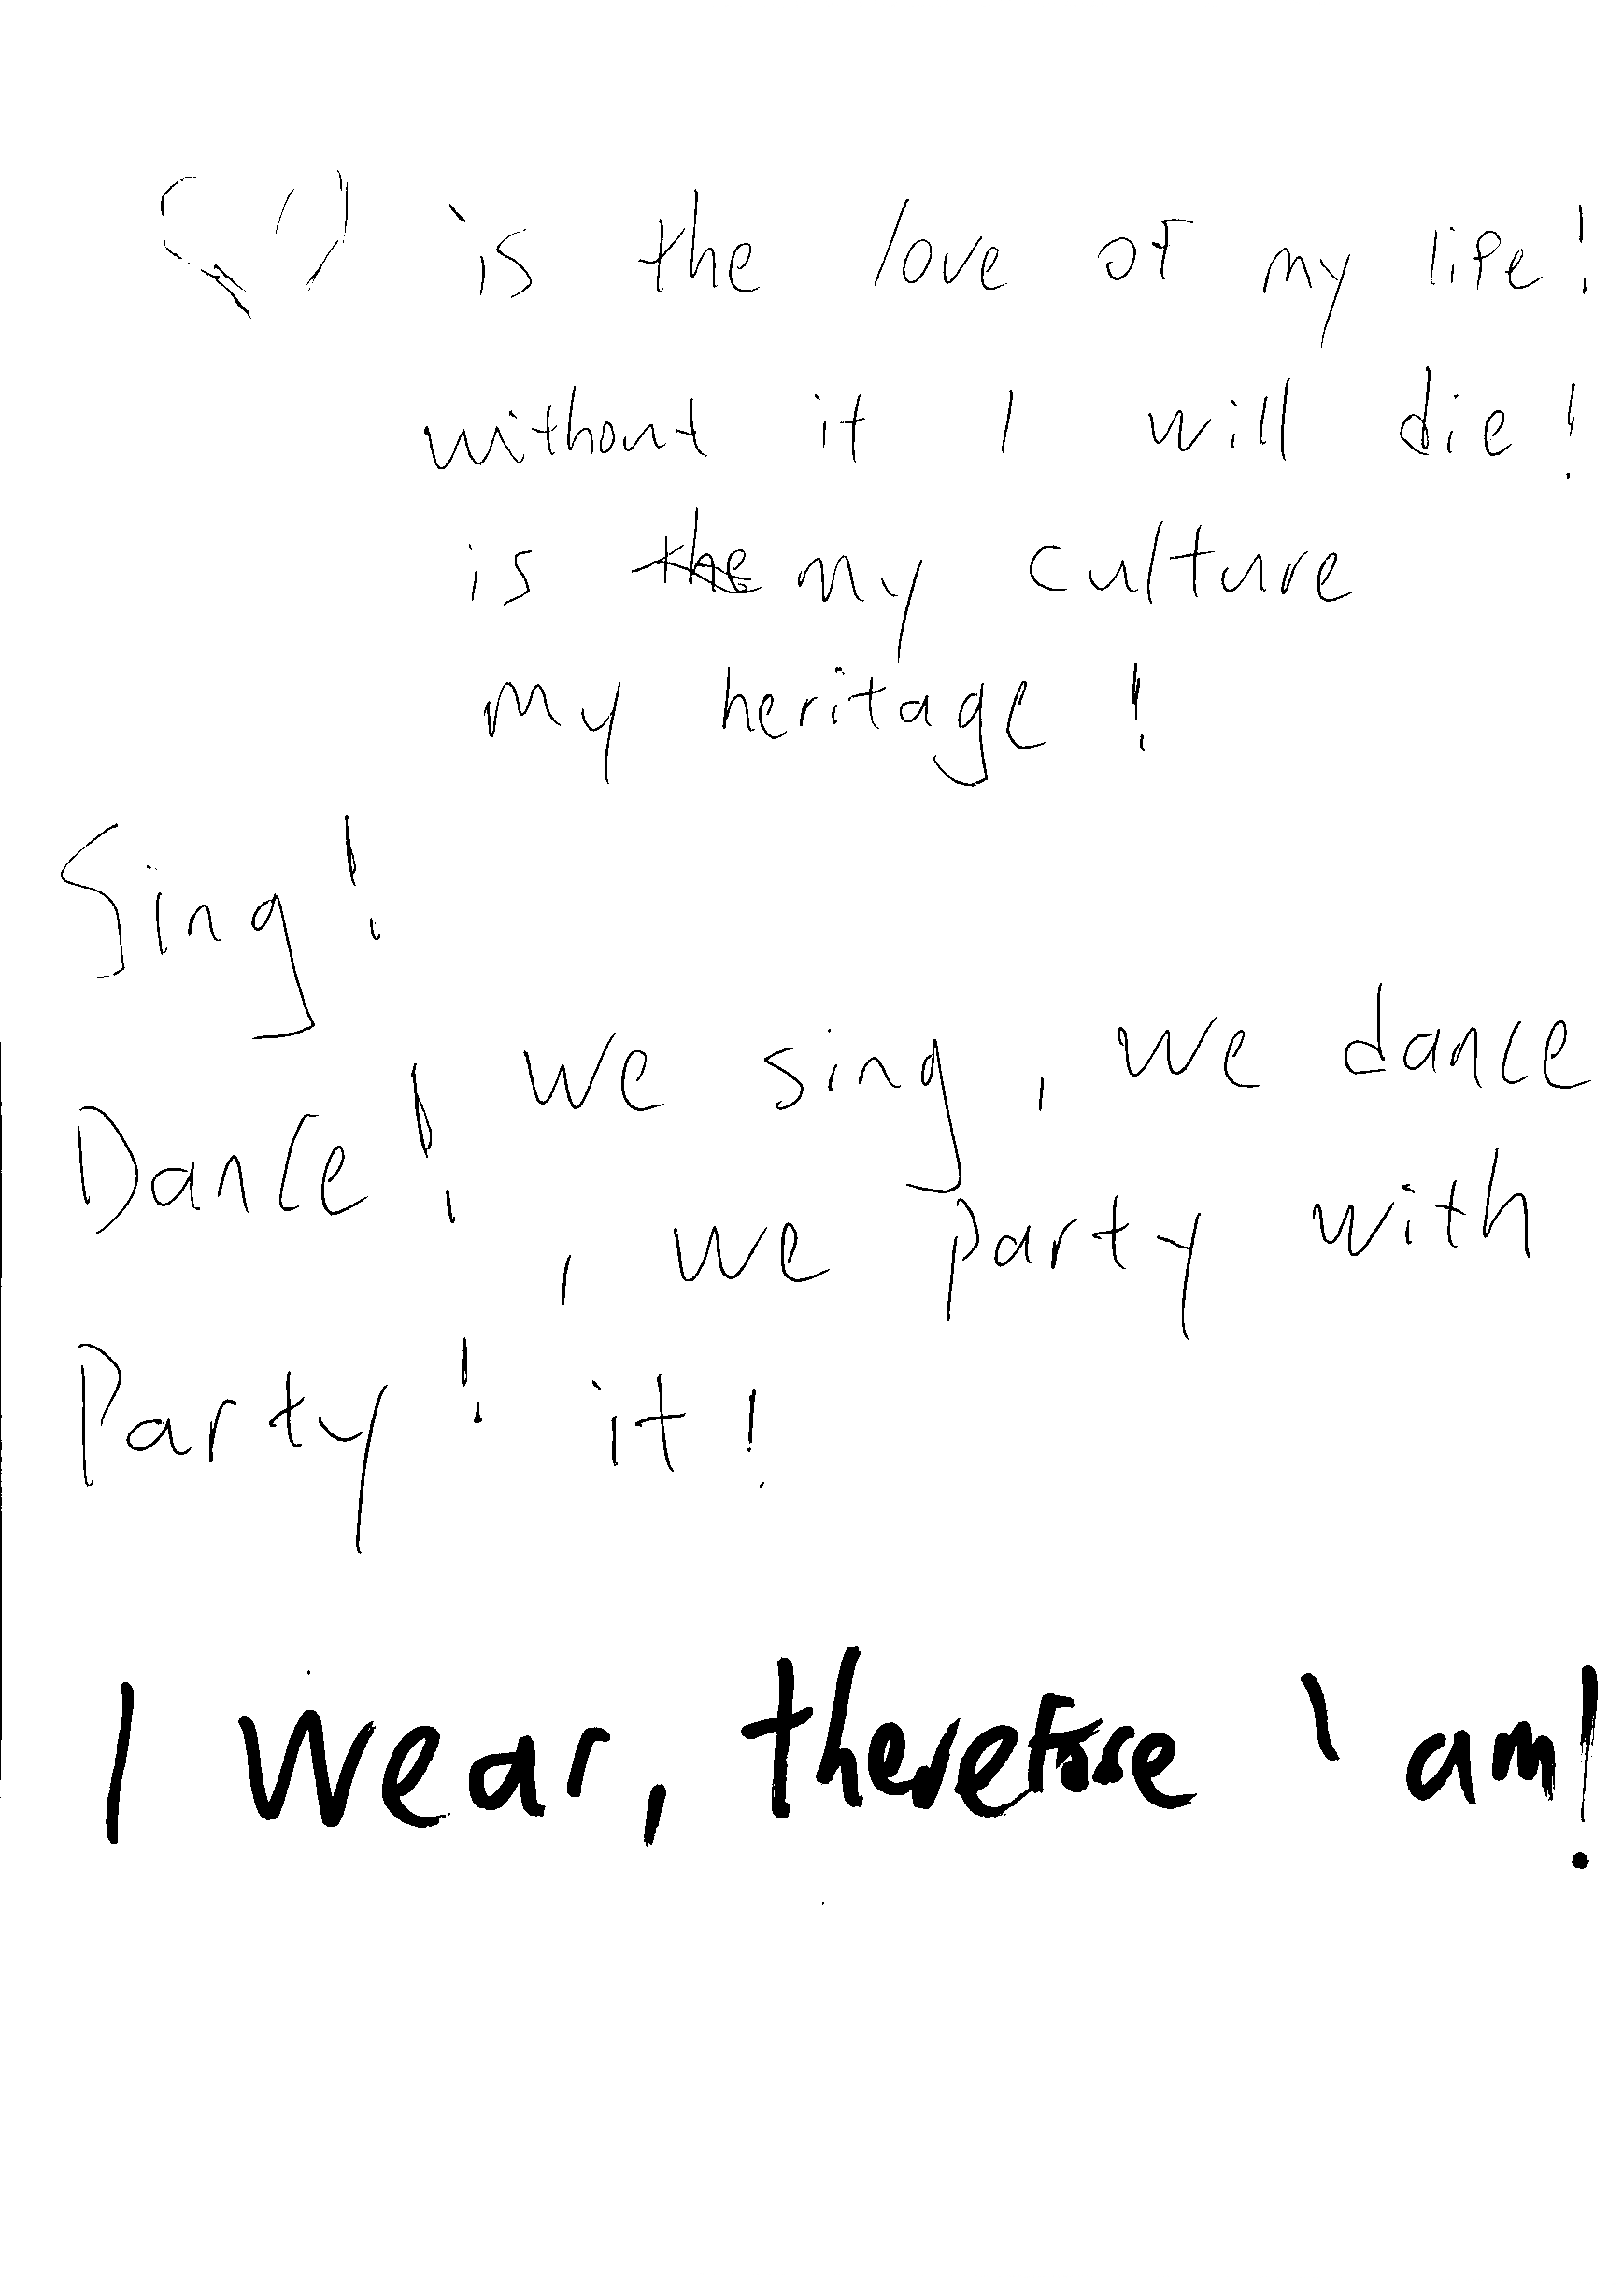 is the love of my life!
without it I will die!
is the my culture
my heritage!
Sing!
Dance! we sing, we dance
, we party with
Party! it!
I wear, therefore I am!